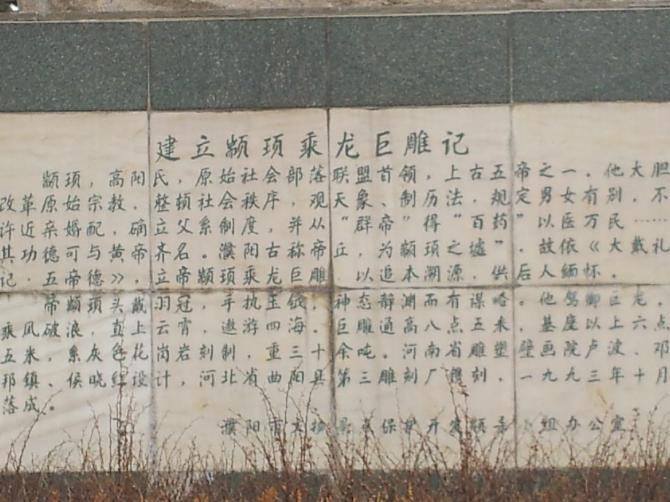 建立颛顼乘龙巨雕记
颛顼，高阳氏，原始社会部落联盟首领，上古五帝之一。他大胆
改革原始宗教，整顿社会秩序，观天象、制历法，规定男女有别，不
许近亲婚配，确立父系制度，并从“群帝”得“百药”以医万民……
其功德可与黄帝齐名。濮阳古称帝丘，为颛顼之墟”。故依《大戴礼
记·五帝德》，立帝颛顼乘龙巨雕以追本溯源，供后人缅怀。
帝颛顼头戴羽冠，手执玉钺，神态渊而有谋略。他驾御巨龙，
乘风破浪，直上云霄，遨游四海。巨雕通高八点五米，基座以上六点
五米，系灰色花岗岩刻制，重三十余吨。河南省雕塑壁画院卢波、邓
邦镇、侯晓红设计，河北省曲阳县第三雕刻厂镌刻，一九九三年十月
落成。
濮阳市文物景点保护开发领导小组办公室